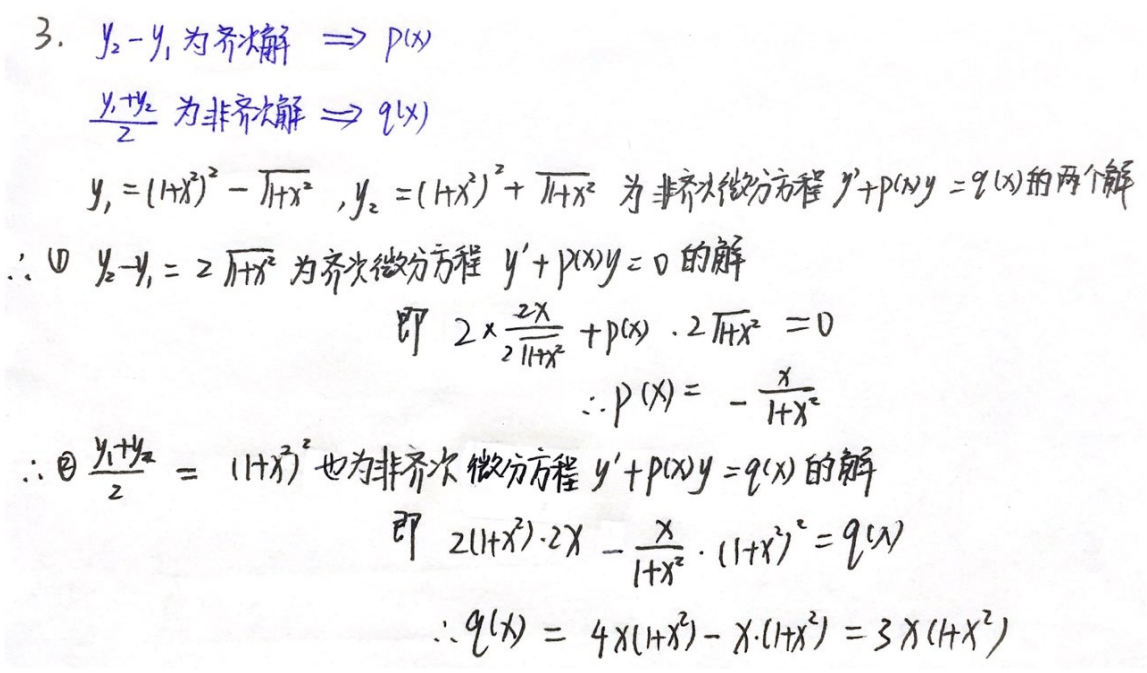 3. y₂-y₁ 为齐次解 ⇒ p(x)
(y₁+y₂)/2 为非齐次解 ⇒ q(x)
y₁ = (1+x²)² - √(1+x²) , y₂ = (1+x²)² + √(1+x²) 为非齐次微分方程 y'+p(x)y = q(x) 的两个解
∴ ① y₂-y₁ = 2√(1+x²) 为齐次微分方程 y'+p(x)y = 0 的解
即 2 × 2x/(2√(1+x²)) + p(x) · 2√(1+x²) = 0
∴ p(x) = - x/(1+x²)
∴ ② (y₁+y₂)/2 = (1+x²)² 也为非齐次微分方程 y'+p(x)y = q(x) 的解
即 2(1+x²)·2x - x/(1+x²) · (1+x²)² = q(x)
∴ q(x) = 4x(1+x²) - x·(1+x²) = 3x(1+x²)